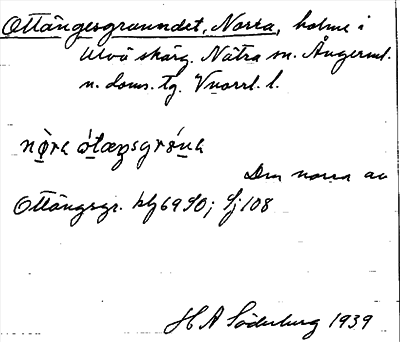 Ottängesgraundet, Norra, holme i
Ulvö skärg. Nätra sn. Ångerml.
n. doms. tg. Vnorrl. l.
nø̀ra ótæŋsgrǿna
Den norra av
Ottängsgr. kbl 69 SO; Sj 108
H A Söderberg 1939